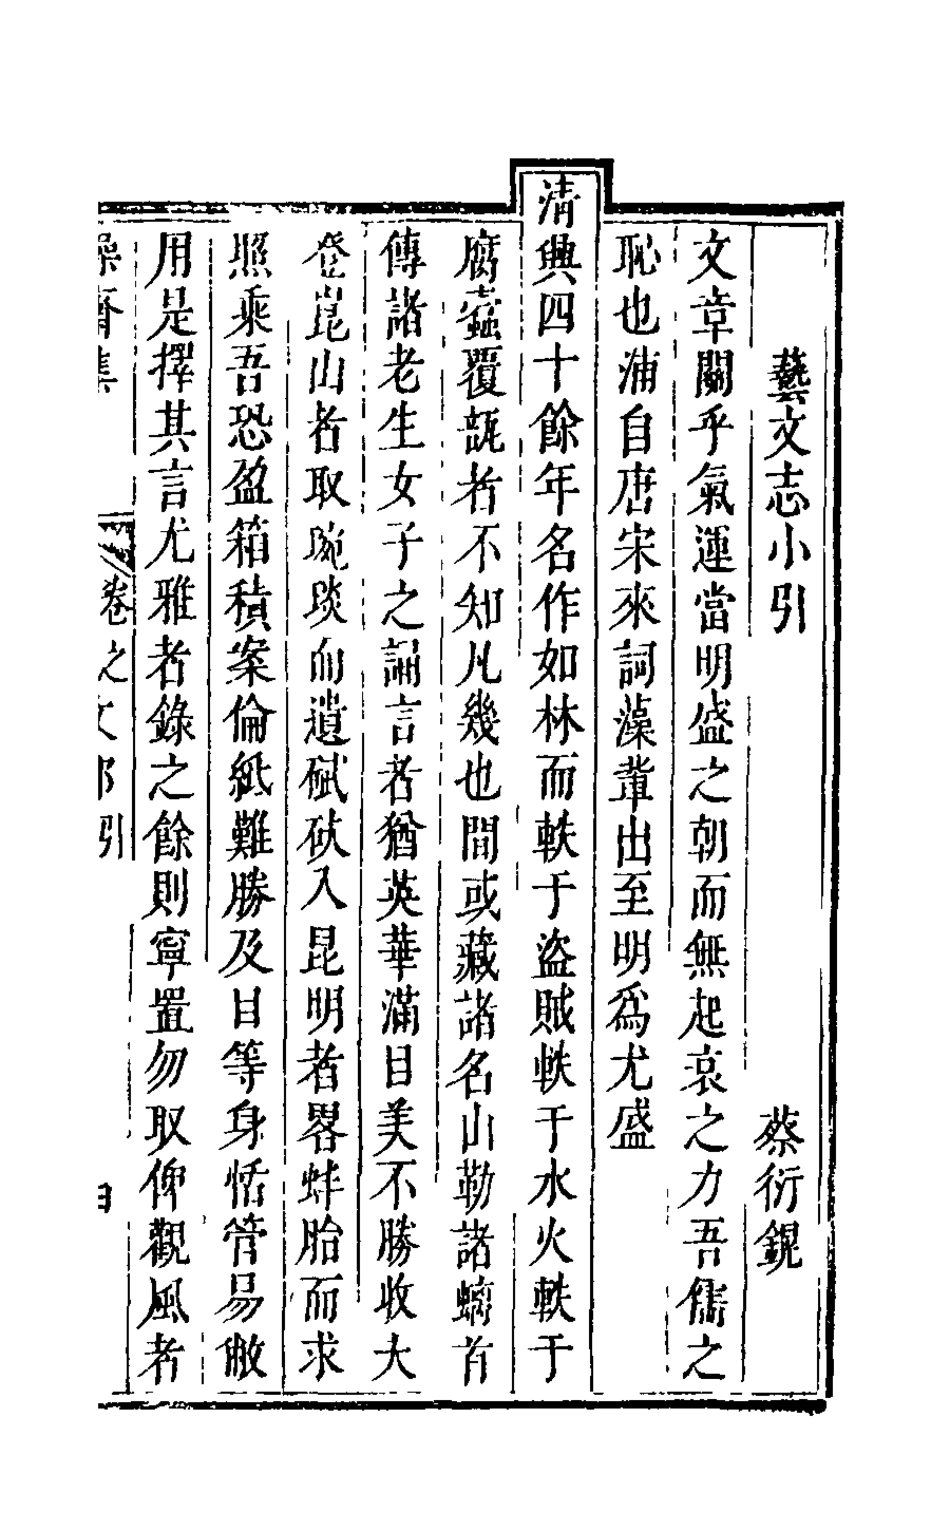 藝文志小引
蔡衍鎤
文章關乎氣運當明盛之朝而無起哀之力吾儒之
恥也浦自唐宋來詞藻輩出至明爲尤盛
清興四十餘年名作如林而軼于盜賊軼于水火軼于
腐蠹覆瓿者不知凡幾也間或藏諸名山勒諸螭首
傳諸老生女子之誦言者猶英華滿目美不勝收大
登崑山者取琬琰而遺碔砆入昆明者畧蚌胎而求
照乘吾恐盈箱積案倫紙難勝及目等身恬管易敝
用是擇其言尤雅者錄之餘則寧置勿取俾觀風者
操齋集
卷之
引